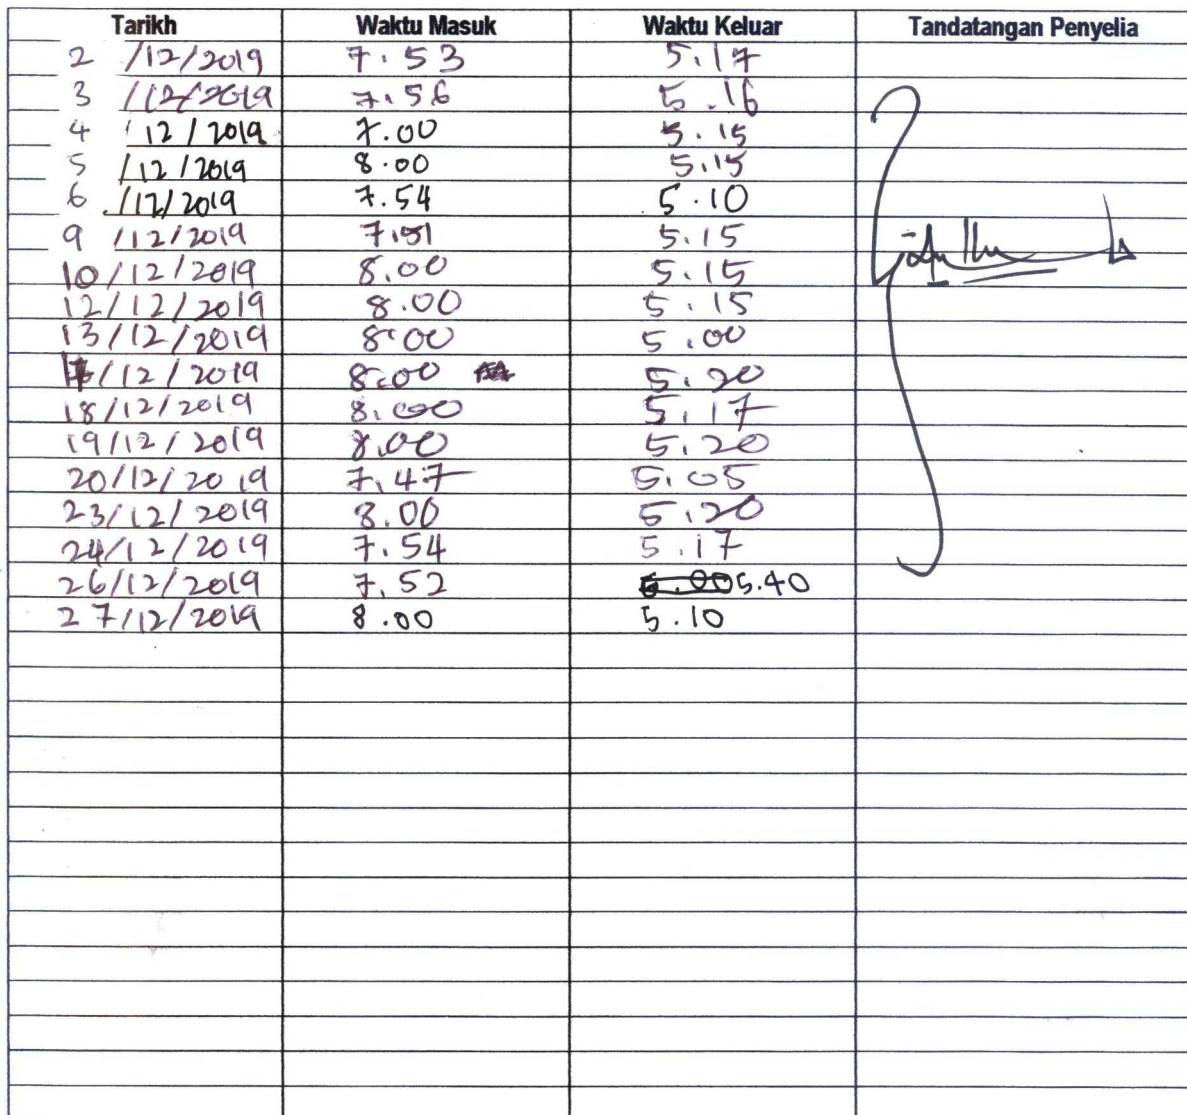 Tarikh Waktu Masuk Waktu Keluar Tandatangan Penyelia
2 /12/2019 7.53 5.17
3 /12/2019 7.56 5.16
4 /12/2019 7.00 5.15
5 /12/2019 8.00 5.15
6 /12/2019 7.54 5.10
9 /12/2019 7.51 5.15
10/12/2019 8.00 5.15
12/12/2019 8.00 5.15
13/12/2019 8.00 5.00
/12/2019 8.00 5.20
18/12/2019 8.00 5.17
19/12/2019 8.00 5.20
20/12/2019 7.47 5.05
23/12/2019 8.00 5.20
24/12/2019 7.54 5.17
26/12/2019 7.52 5.40
27/12/2019 8.00 5.10